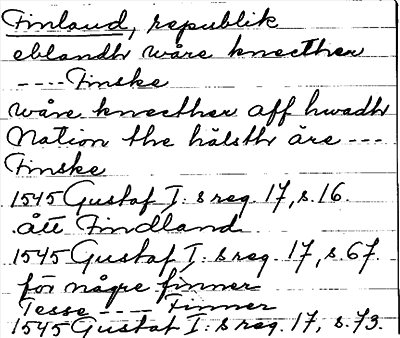 Finland, republik
eblandh wåre knecther
---- Finske
wåre knecther aff hwadh
Nation the hälsth äre ---
Finske
1545 Gustaf I: s reg. 17, s. 16.
ått Findland
1545 Gustaf I: s reg. 17, s. 67.
för någre finner
Tesse ---- Finner
1545 Gustaf I: s reg. 17, s. 73.